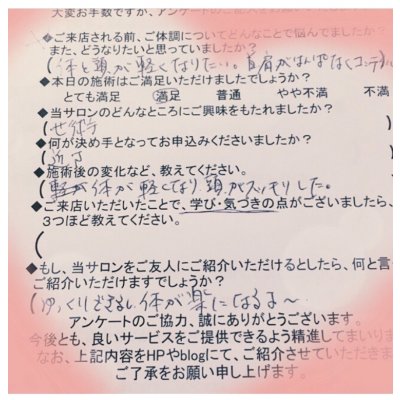 大変お手数ですが、アンケートのご
◆ご来店される前、ご体調についてどんなことで悩んでましたか?
また、どうなりたいと思っていましたか?
(体と頭が軽くなりたい。首肩がはんぱなくコッテ
◆本日の施術はご満足いただけましたでしょうか?
とても満足 満足 普通 やや不満 不満
◆当サロンのどんなところにご興味をもたれましたか?
(
)
◆何が決め手となってお申込みくださいましたか?
(
)
◆施術後の変化など、教えてください。
体が軽くなり頭がスッキリした。
◆ご来店いただいたことで、学び・気づきの点がございましたら、
3つほど教えてください。
(
◆もし、当サロンをご友人にご紹介いただけるとしたら、何と言
ご紹介いただけますでしょうか?
(ゆっくりできるし体が楽になるよ〜
アンケートのご協力、誠にありがとうございます。
今後とも、良いサービスをご提供できるよう精進してまいりま
なお、上記内容をHPやblogにて、ご紹介させていただきま
ご了承をお願い申し上げます。